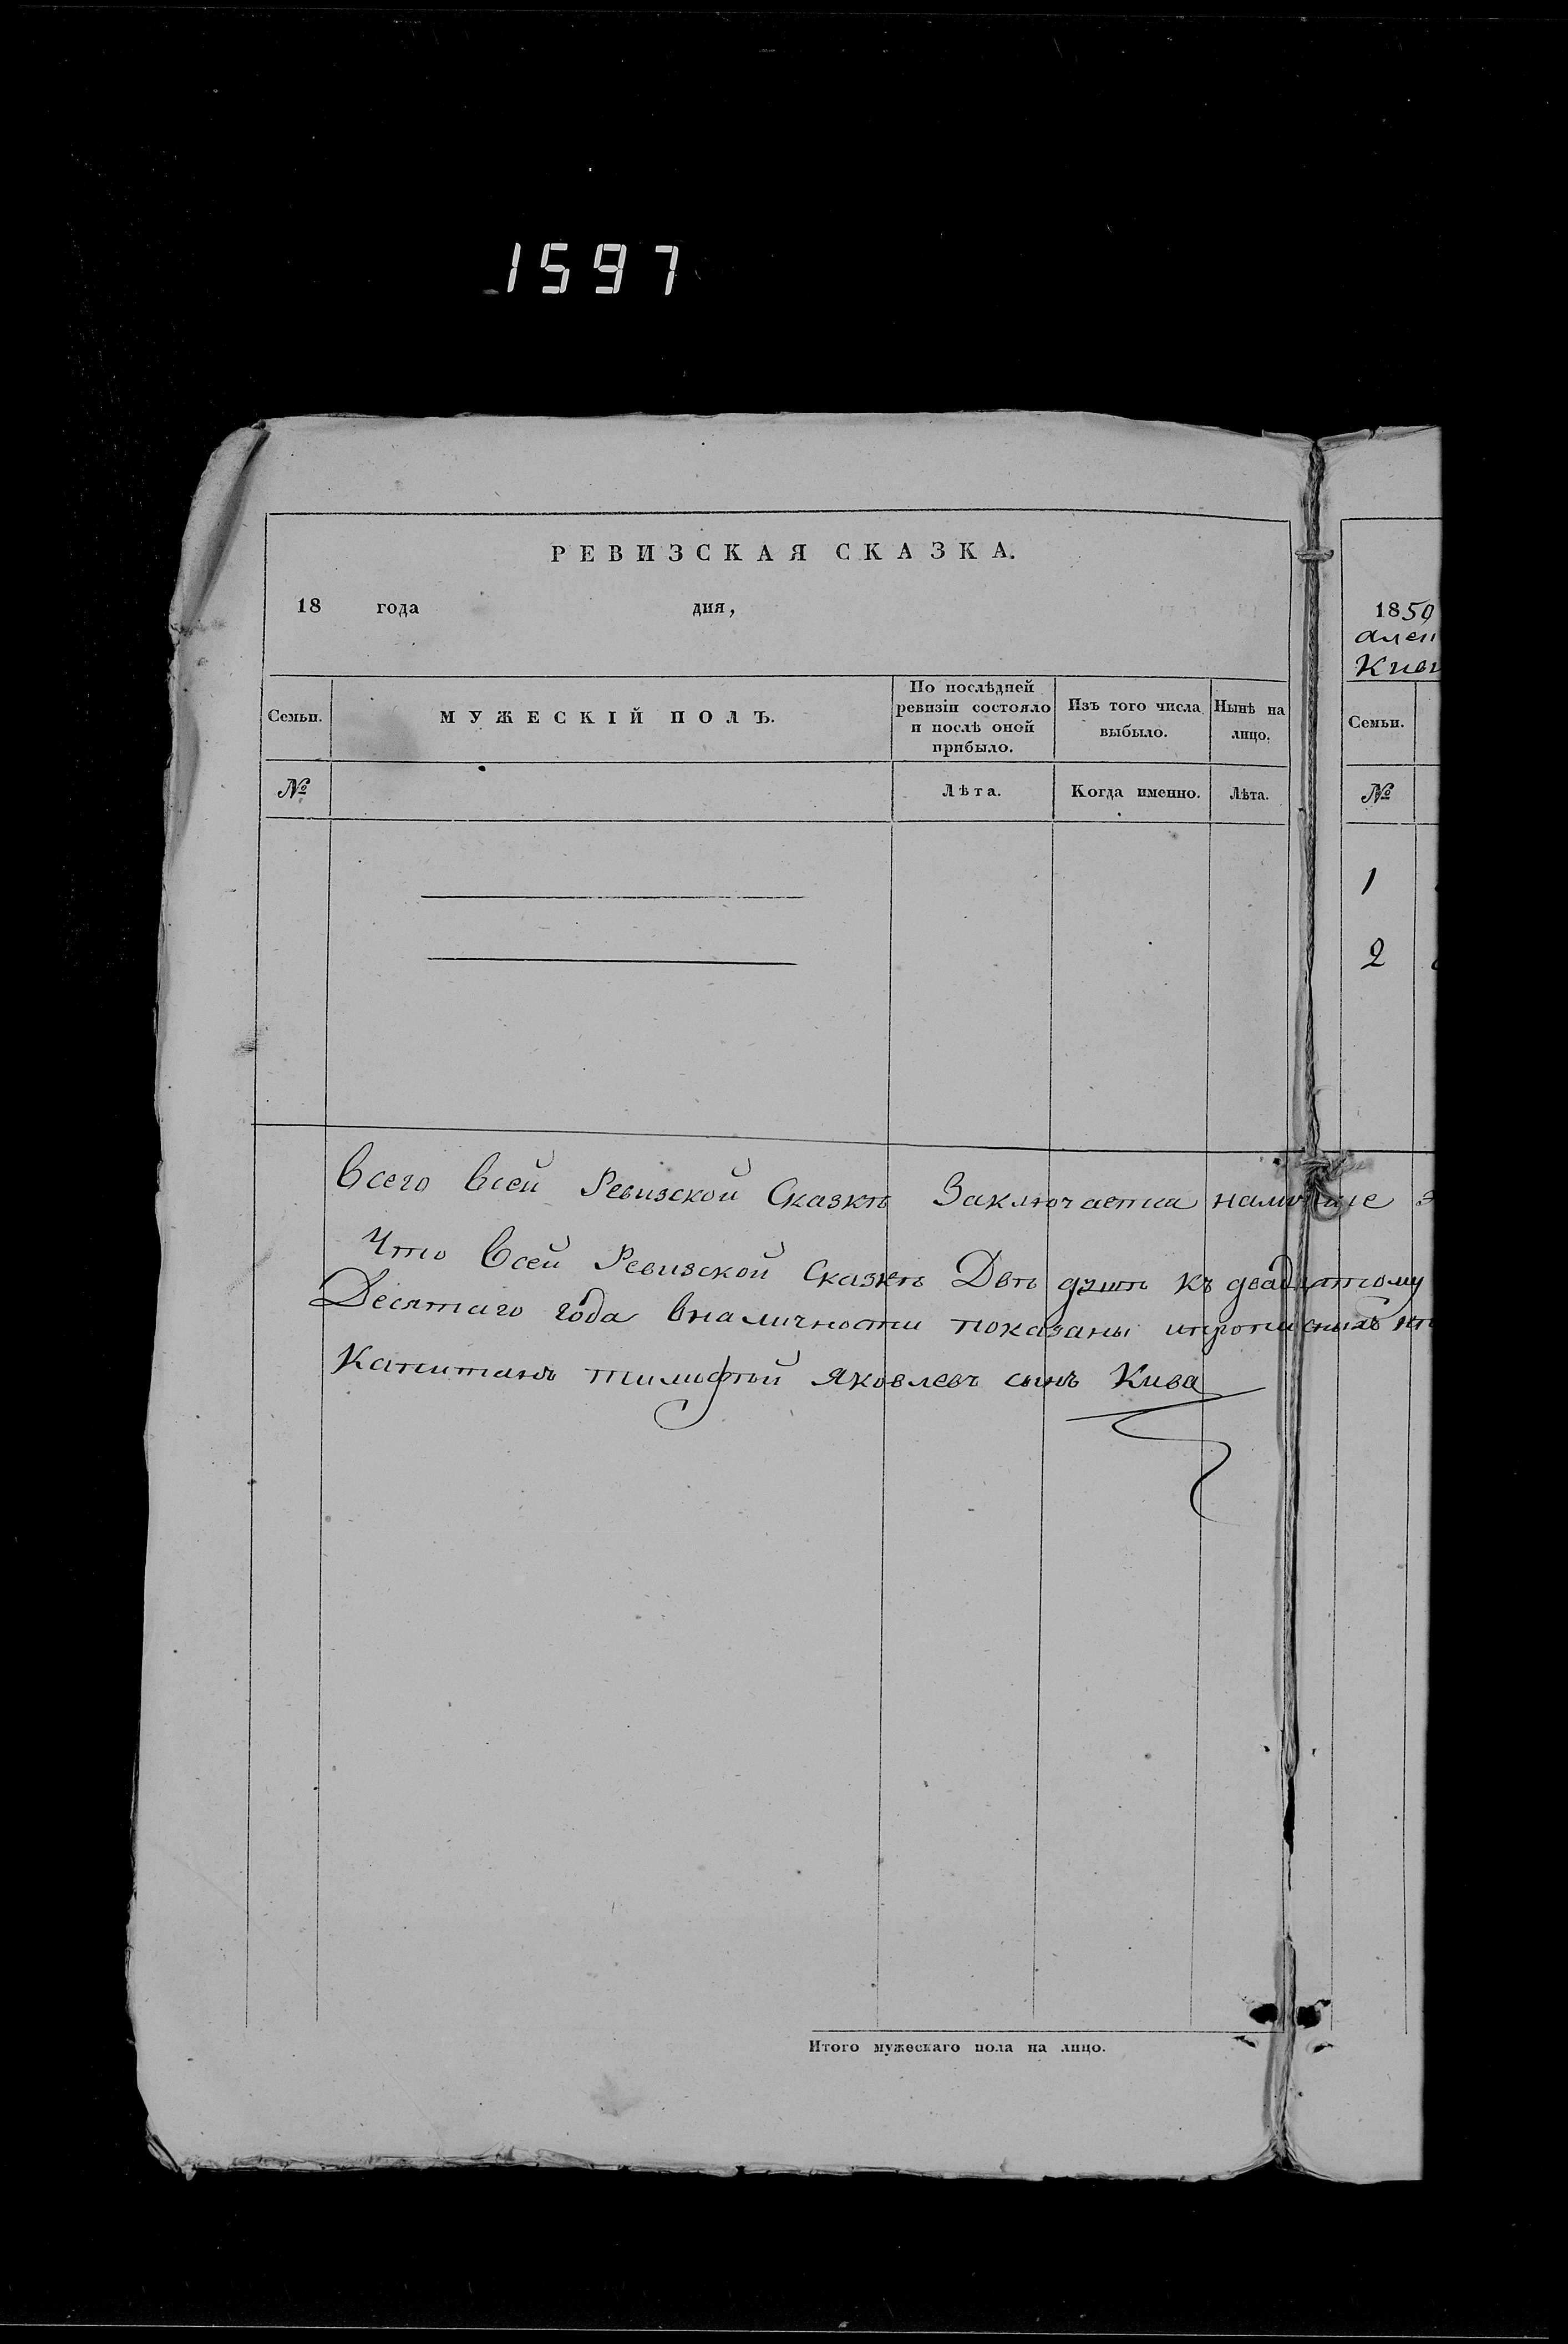 1597
РЕВИЗСКАЯ СКАЗКА.
18 года дня,
Семьи.
МУЖЕСКІЙ ПОЛЪ.
По послѣдней
ревизіи состояло
и послѣ оной
прибыло.
Изъ того числа
выбыло.
Нынѣ на
лицо.
№
Лѣта.
Когда именно.
Лѣта.
Всего всей Ревизской Сказкѣ Заключается
Что всей Ревизской Сказкѣ Двѣ душѣ къ двадцатому
Десятаго года вналичности показаны
Капитанъ Яковлевъ сынъ Кива
Итого мужескаго пола на лицо.
1850
Семьи.
№
1
2